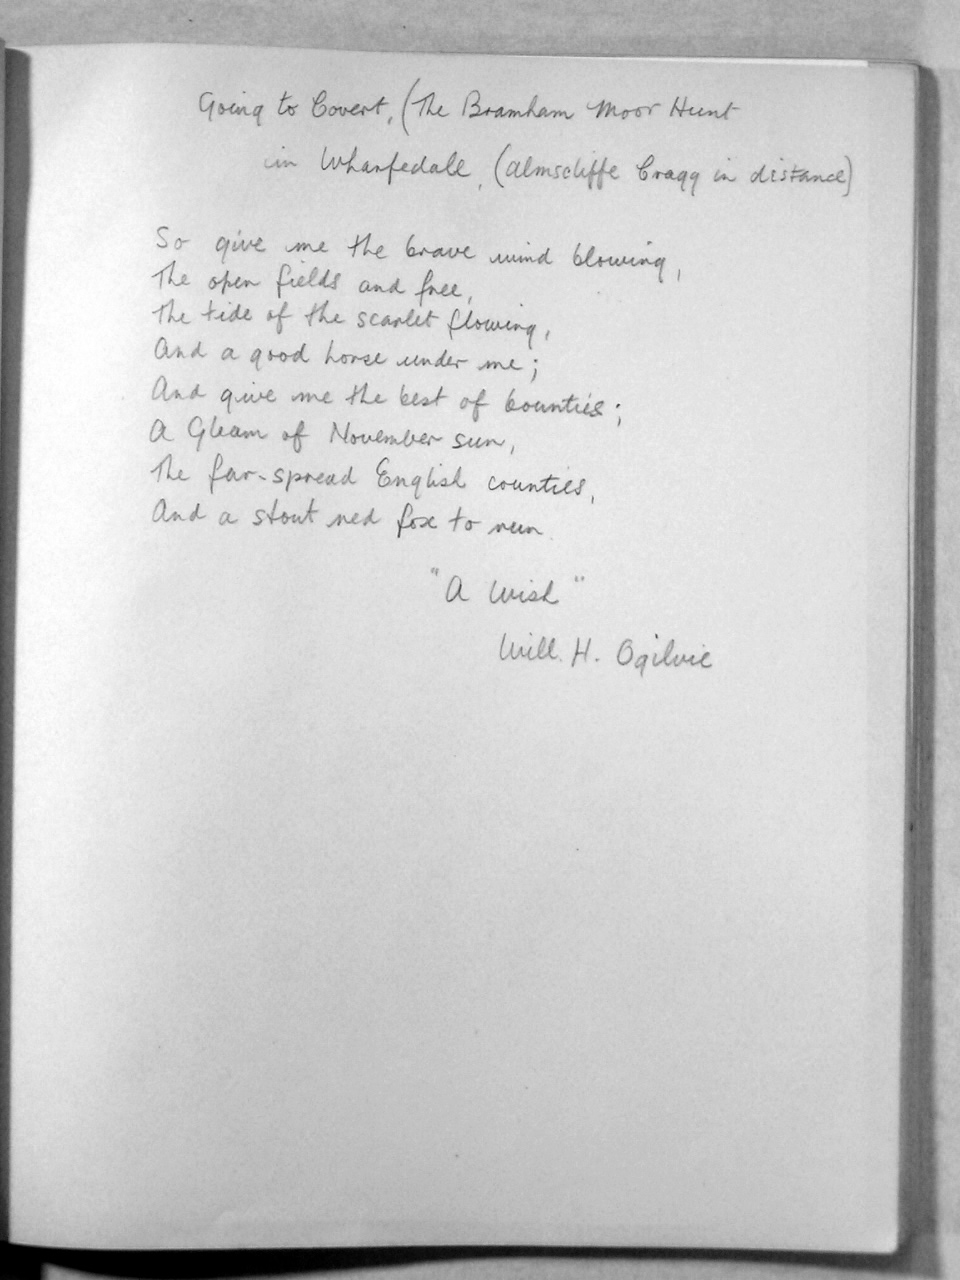 Going to Covert, (The Bramham Moor Hunt
in Wharfedale, (Almscliffe Cragg in distance)
So give me the brave wind blowing,
The open fields and free,
The tide of the scarlet flowing,
And a good horse under me;
And give me the best of bounties;
A Gleam of November sun,
The far-spread English counties,
And a stout red fox to run.
"A Wish"
Will. H. Ogilvie